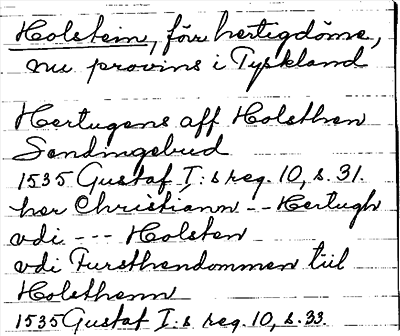 Holstein, förr hertigdöme,
nu provins i Tyskland
Hertugens aff Holsthen
Sendingebud
1535 Gustaf I:s reg. 10, s. 31.
her Christiann -- Hertugh
vdi --- Holsten
vdi Fursthendommen tiil
Holsthenn
1535 Gustaf I:s reg. 10, s. 33.